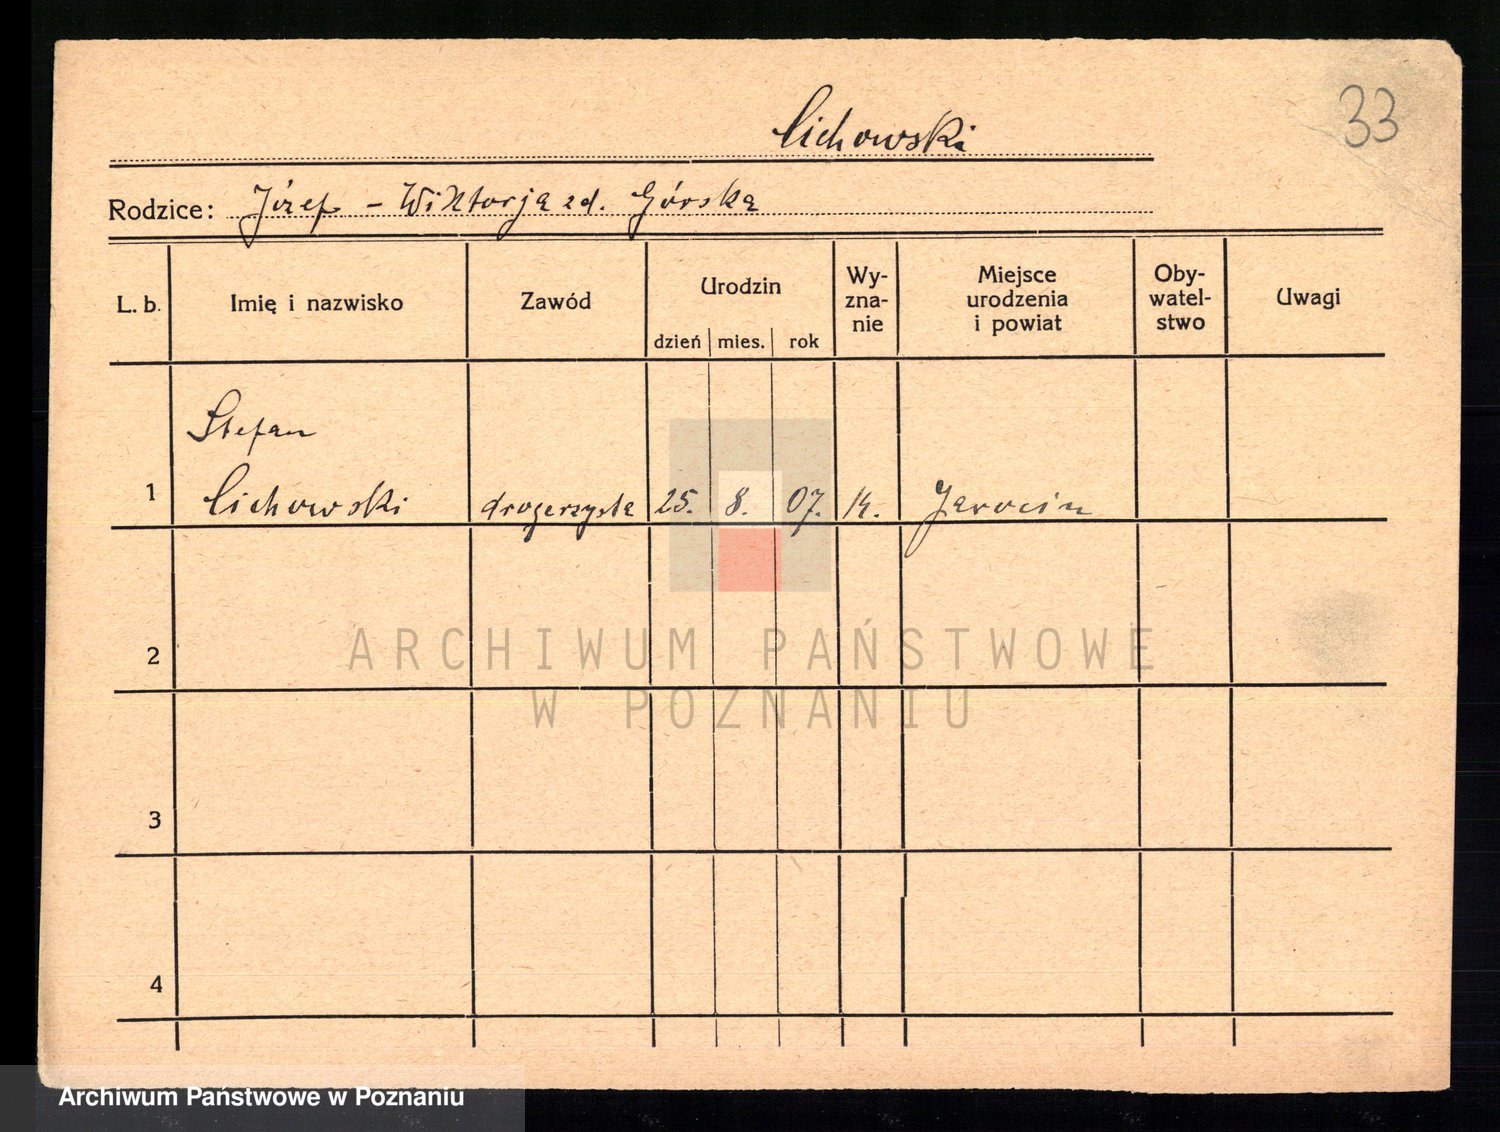 33
Cichowski
Rodzice: Józef – Wiktorja zd. Górska
L. b.
Imię i nazwisko
Zawód
Urodzin
dzień
mies.
rok
Wy-
zna-
nie
Miejsce
urodzenia
i powiat
Oby-
watel-
stwo
Uwagi
Stefan
1 Cichowski drogerzysta 25. 8. 07. Jarocin
2
ARCHIWUM PAŃSTWOWE
W POZNANIU
3
4
Archiwum Państwowe w Poznaniu